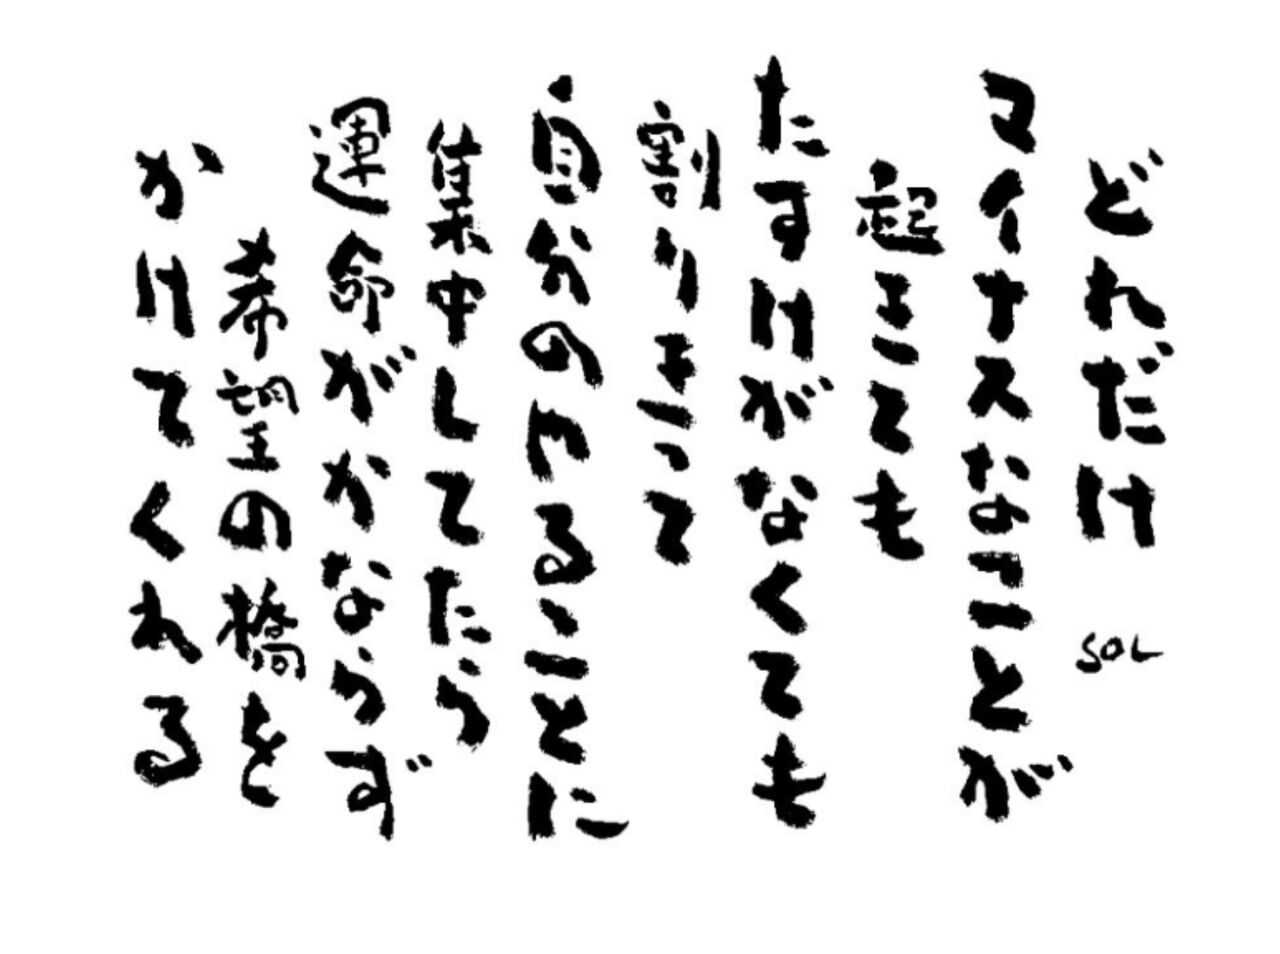 どれだけ
マイナスなことが
起きても
たすけがなくても
割りきって
自分のやることに
集中してたら
運命がかならず
希望の橋を
かけてくれる
SOL